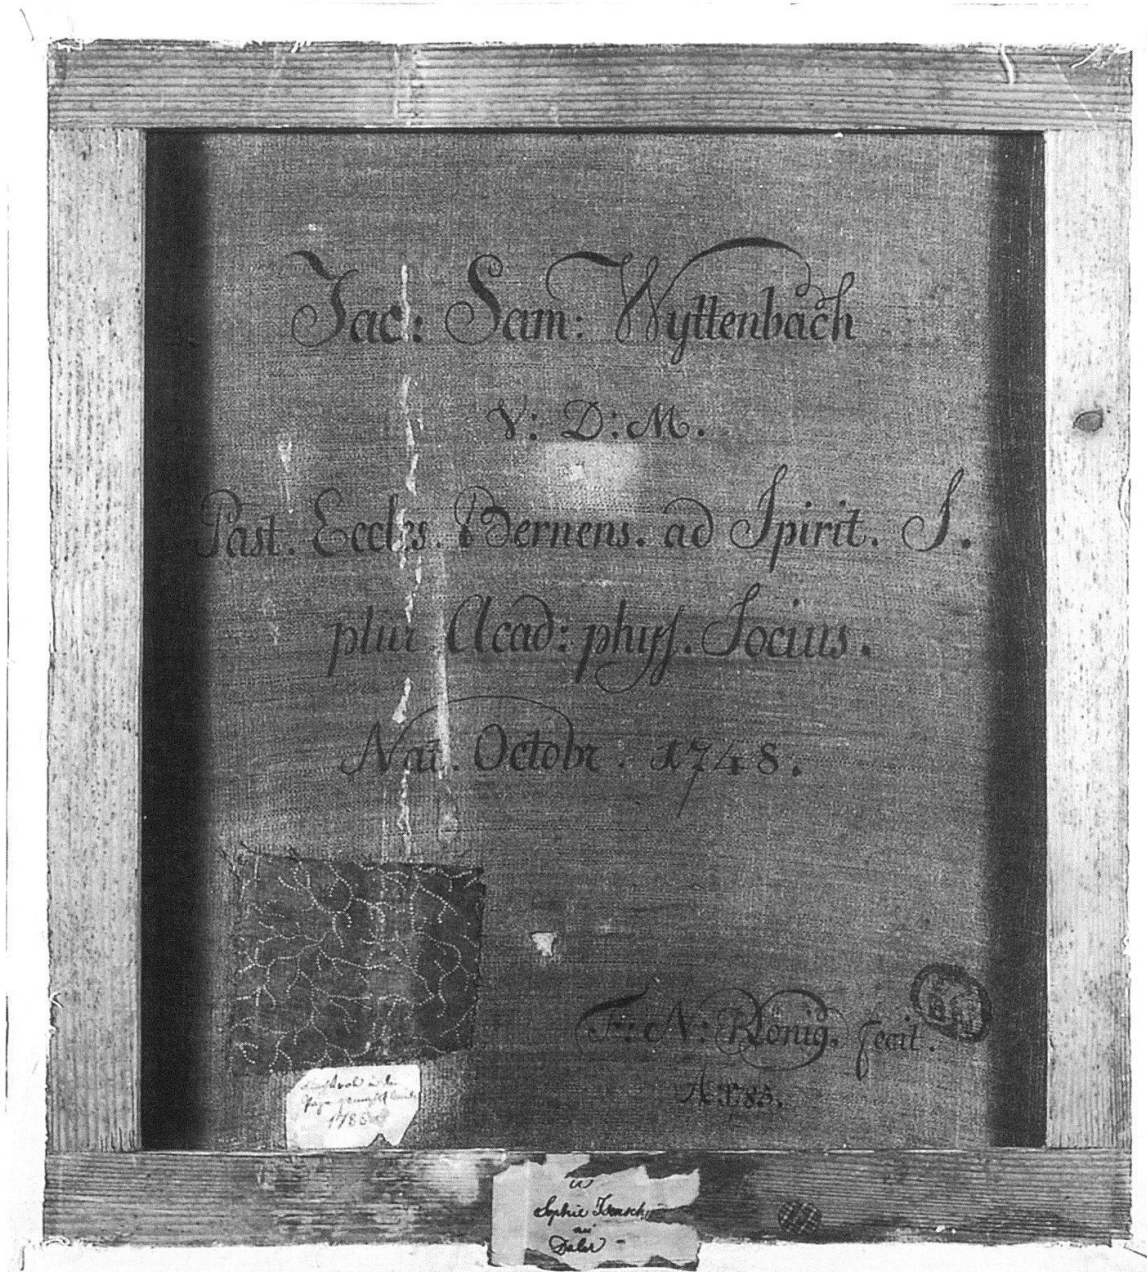 Jac: Sam: Wyttenbach
V: D: M.
Past. Eccles. Bernens. ad Spirit. S.
plur. Acad: phyſſ. Socius.
Nat. Octobr. 1748.
F: N: König. fecit.
A. 1785.
1785
Sophie